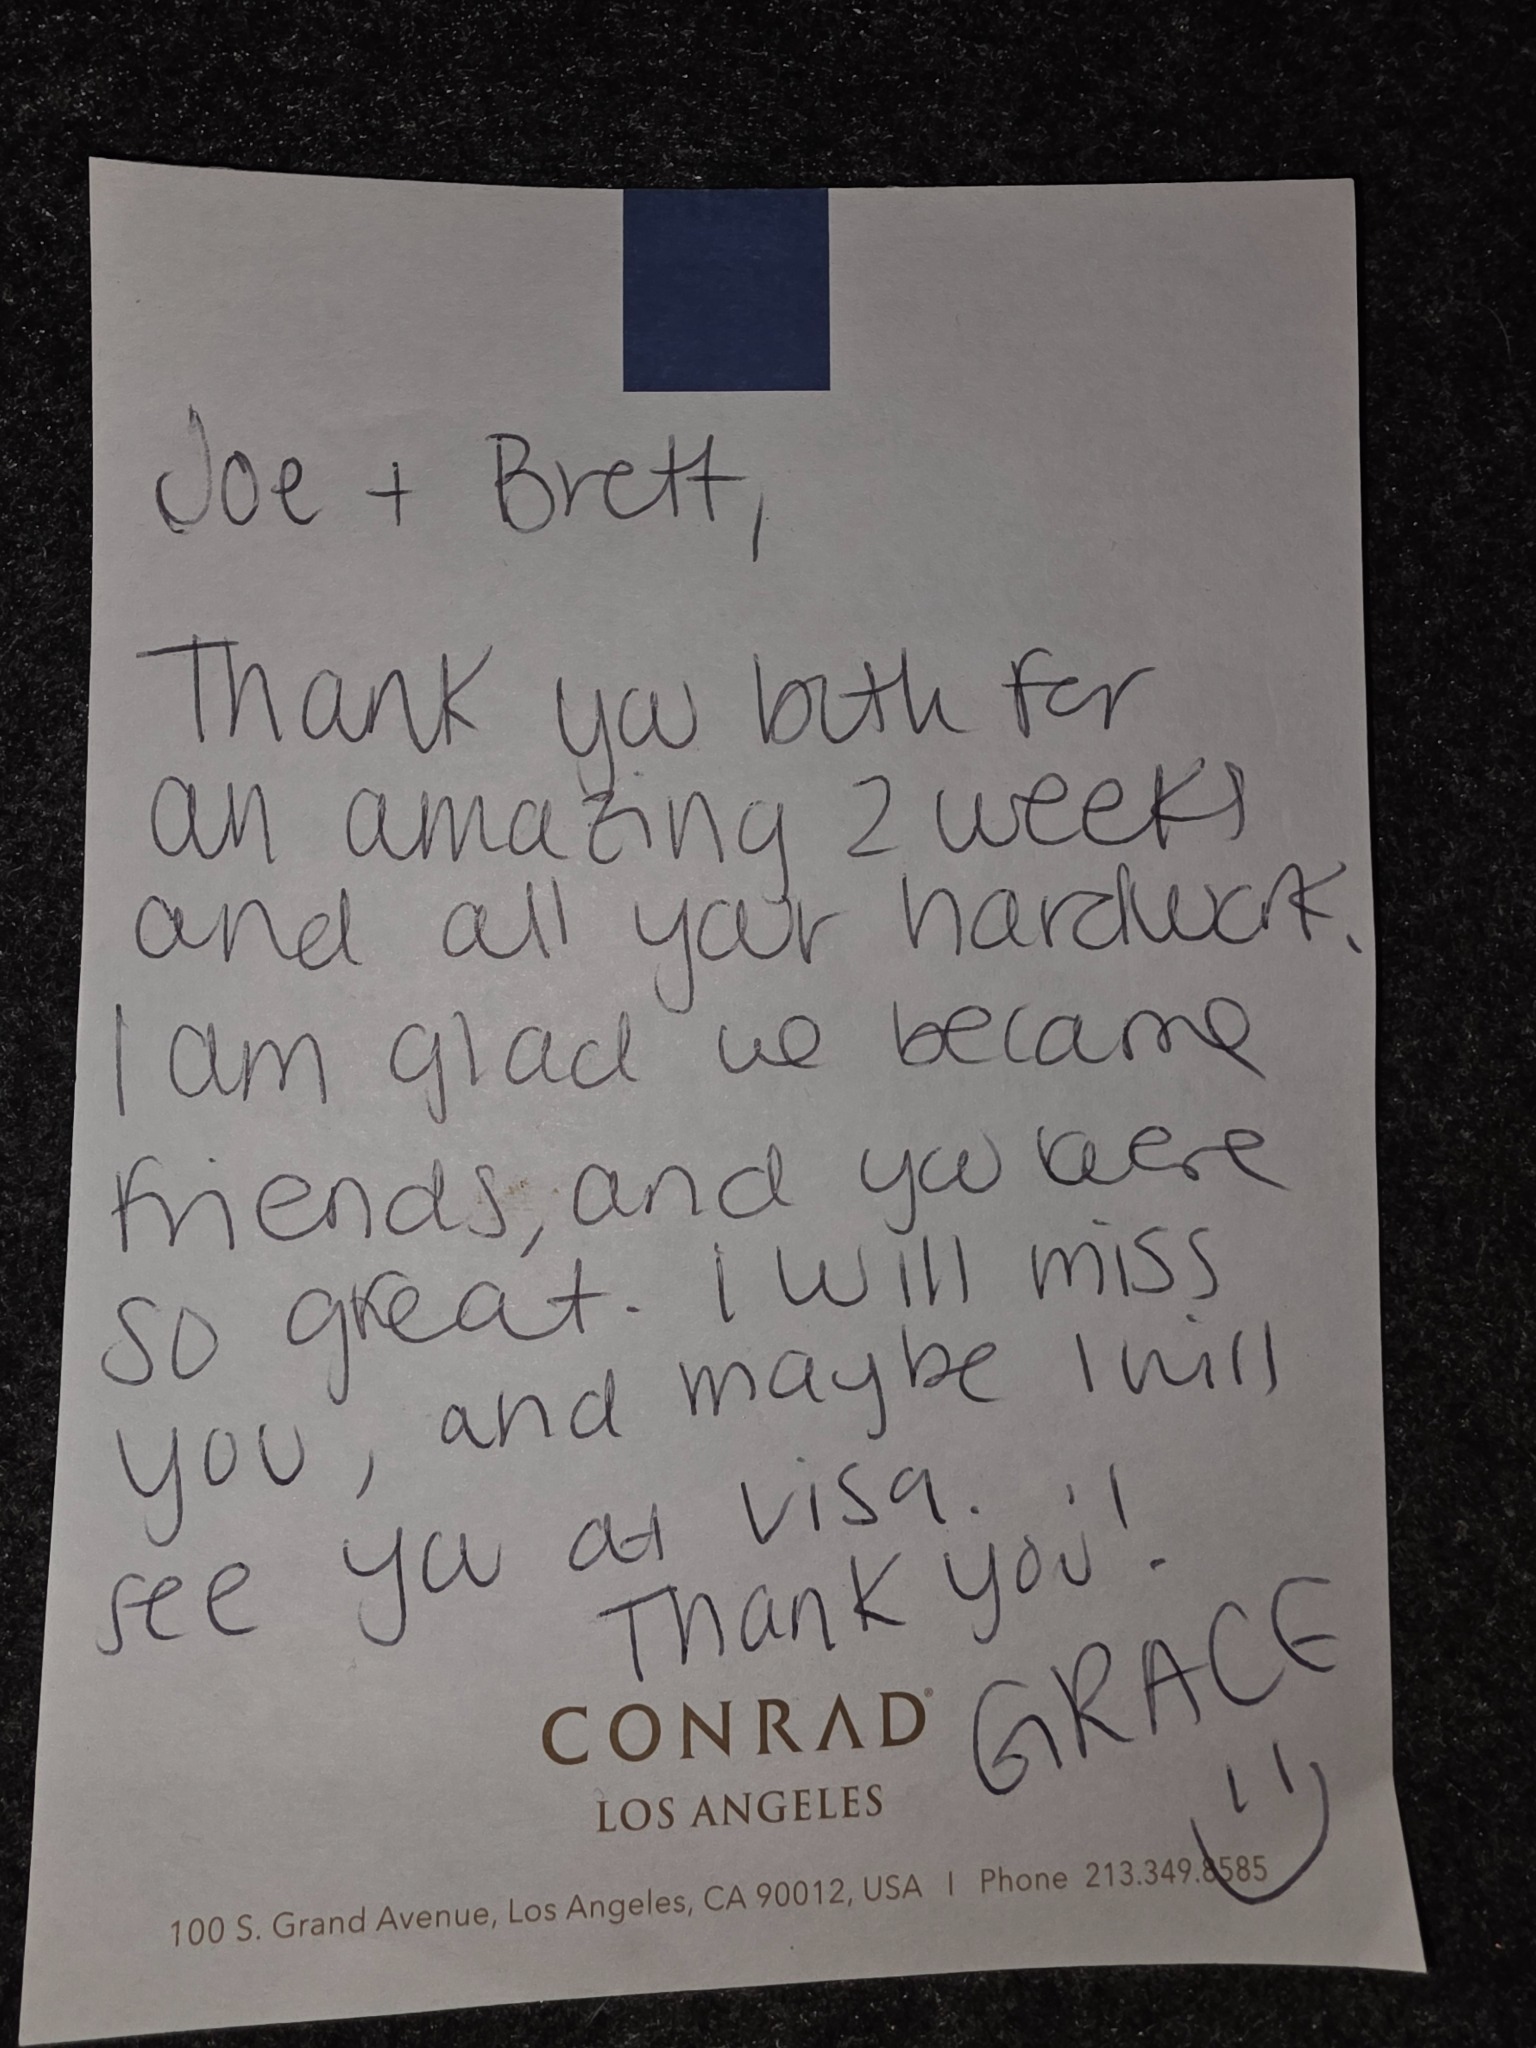 Joe + Brett,
Thank you both for
an amazing 2 weeks
and all your hardwork.
I am glad we became
friends, and you were
so great. I will miss
you, and maybe I will
see you at visa.
Thank you!
GRACE
CONRAD®
LOS ANGELES
100 S. Grand Avenue, Los Angeles, CA 90012, USA | Phone 213.349.8585